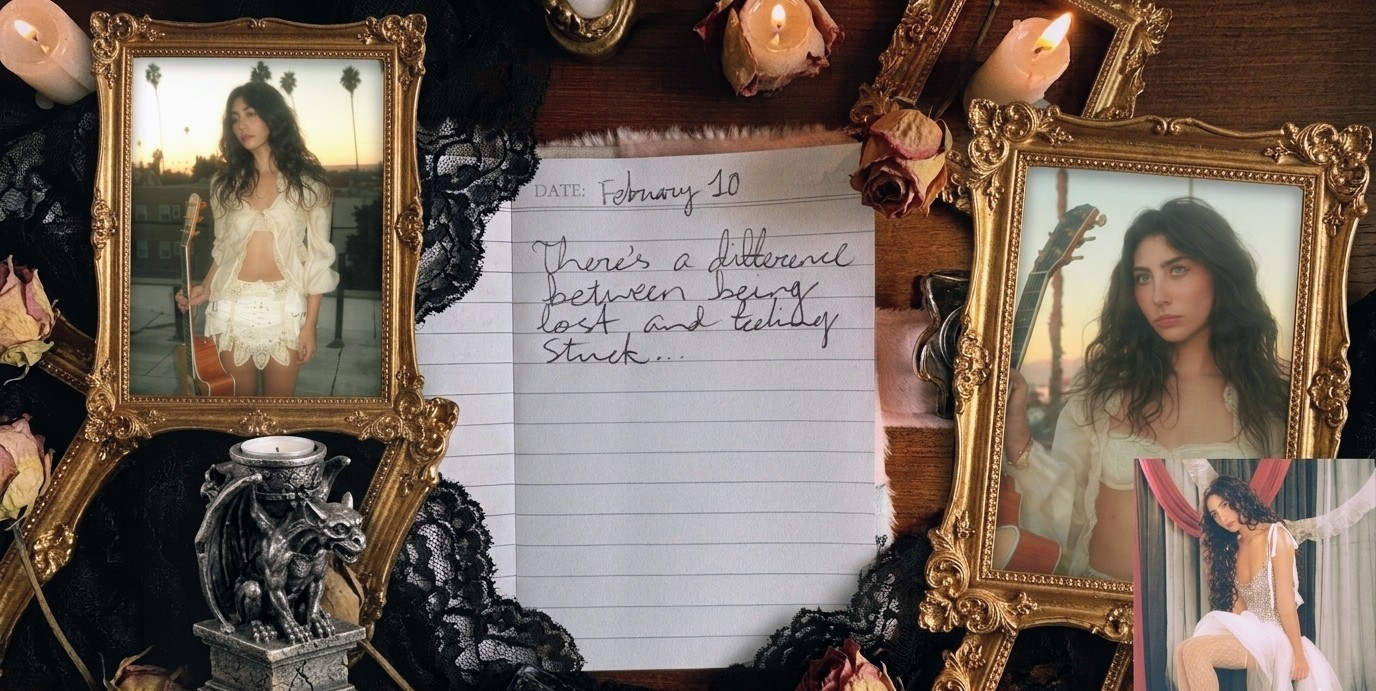 DATE: February 10
There's a difference
between being
lost and feeling
stuck...